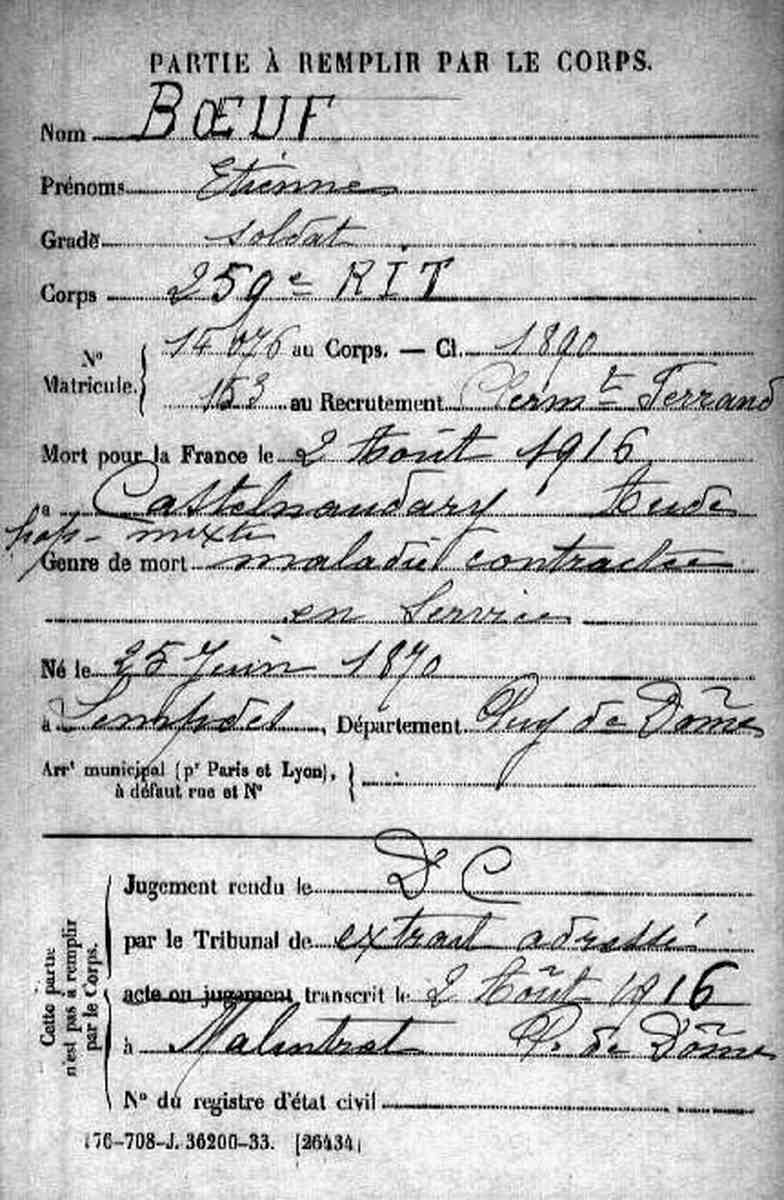 PARTIE À REMPLIR PAR LE CORPS.
Nom BŒUF
Prénoms Etienne
Grade soldat
Corps 259e RIT
No Matricule. 14076 au Corps. — Cl. 1890
153 au Recrutement Clermt Ferrand
Mort pour la France le 2 Août 1916
a Castelnaudary Aude
hop- mixte
Genre de mort maladie contractée
en Service
Né le 25 Juin 1870
à Lempdes, Département Puy de Dôme
Arrt municipal (pr Paris et Lyon),
à défaut rue et No
Cette partie
n'est pas à remplir
par le Corps.
Jugement rendu le D C
par le Tribunal de extrait adressé
acte ou jugement transcrit le 2 Août 1916
à Malintrat P. de Dôme
No du registre d'état civil
176-708-J. 36200-33. [26434]